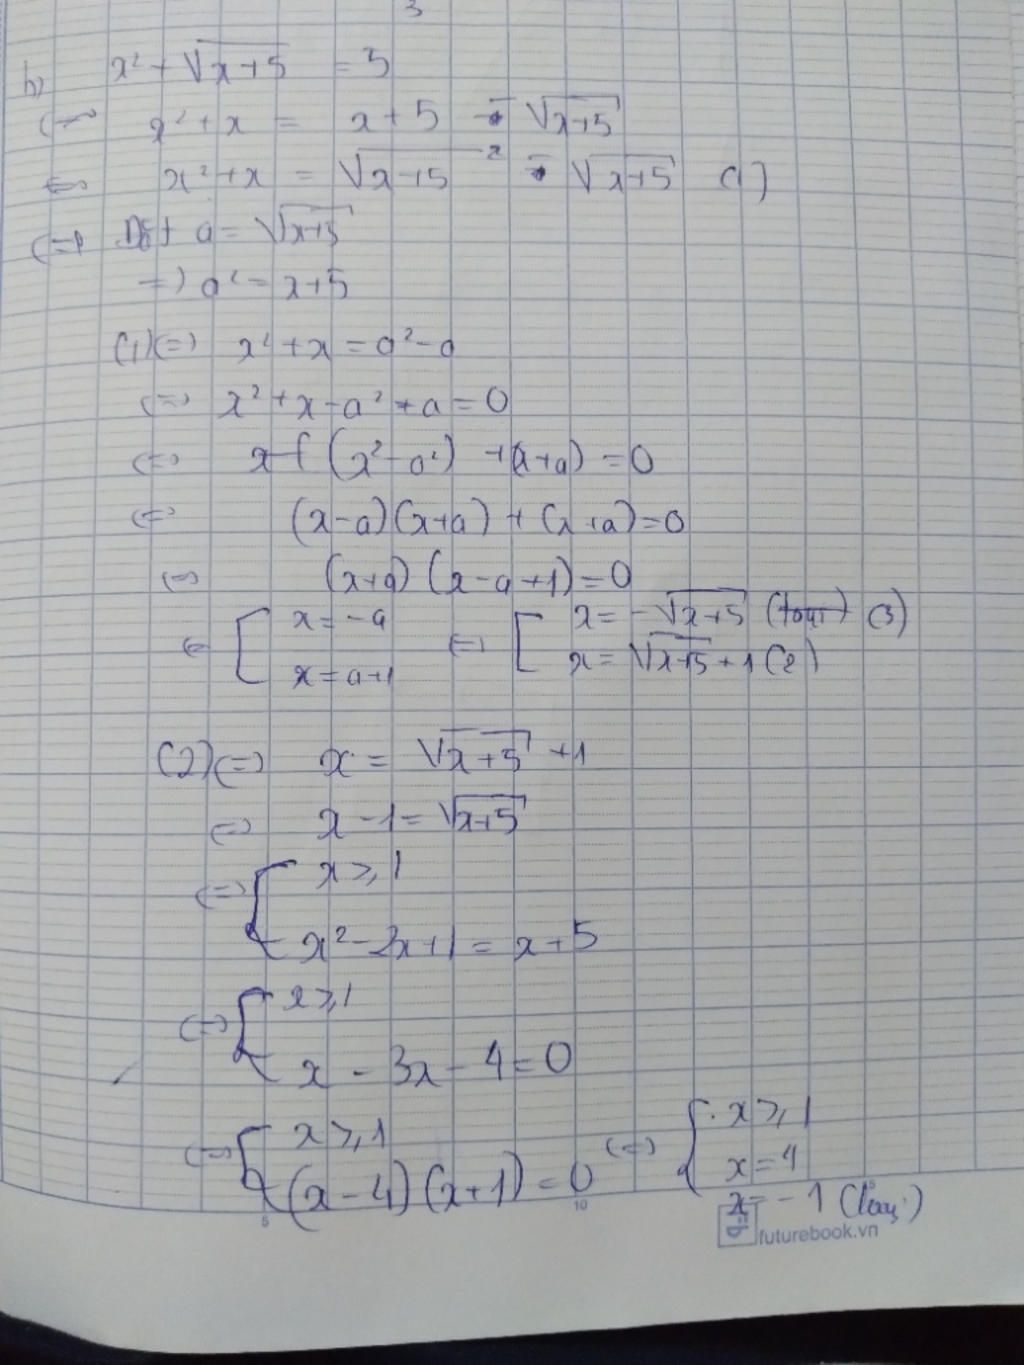 3
b) x² + √x+5 = 5
<=> x² + x = x + 5 - √x+5
<=> x² + x = √x+5² - √x+5 (1)
<=> Đặt a = √x+5
=> a² = x+5
(1) <=> x² + x = a² - a
<=> x² + x - a² + a = 0
<=> (x² - a²) + (x+a) = 0
<=> (x-a)(x+a) + (x+a) = 0
<=> (x+a)(x-a+1) = 0
<=> [ x = -a <=> [ x = -√x+5 (3)
x = a+1 x = √x+5 + 1 (2)
(2) <=> x = √x+5 + 1
<=> x - 1 = √x+5
<=> { x ≥ 1
x² - 2x + 1 = x + 5
<=> { x ≥ 1
x - 3x - 4 = 0
<=> { x ≥ 1 <=> { x ≥ 1
(x-4)(x+1) = 0 x = 4
x = -1 (loại)
5 10
futurebook.vn